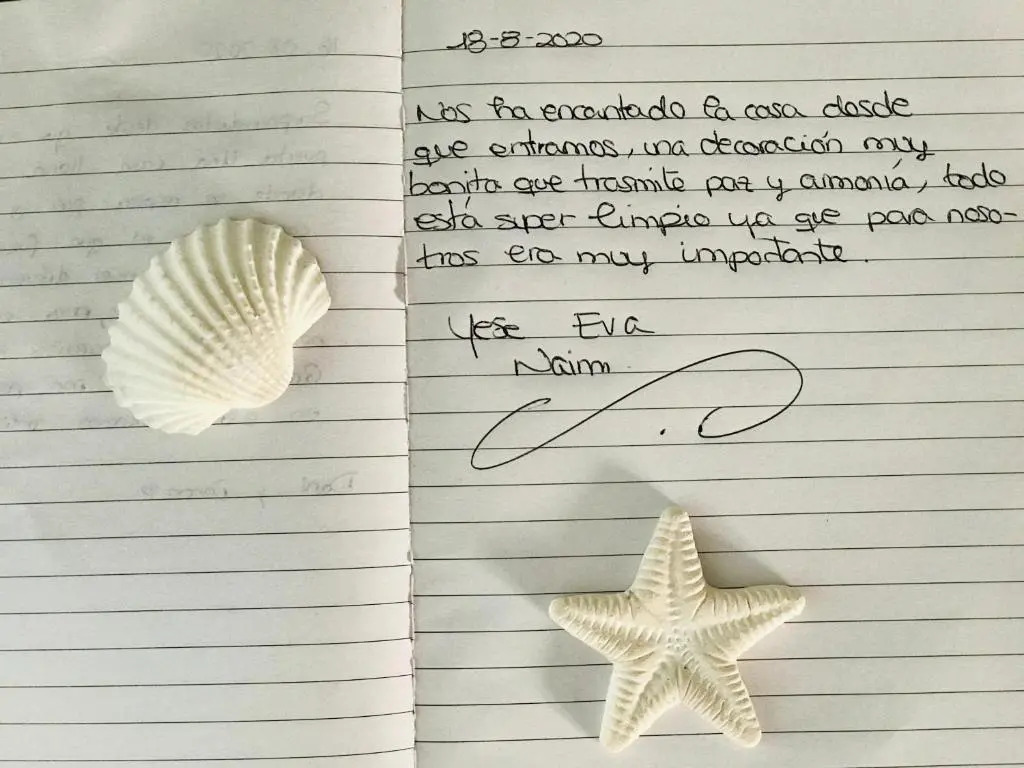 18-8-2020
Nos ha encantado la casa desde
que entramos, una decoración muy
bonita que trasmite paz y armonía, todo
está super limpio ya que para noso-
tros era muy importante.
Yese Eva
Naim